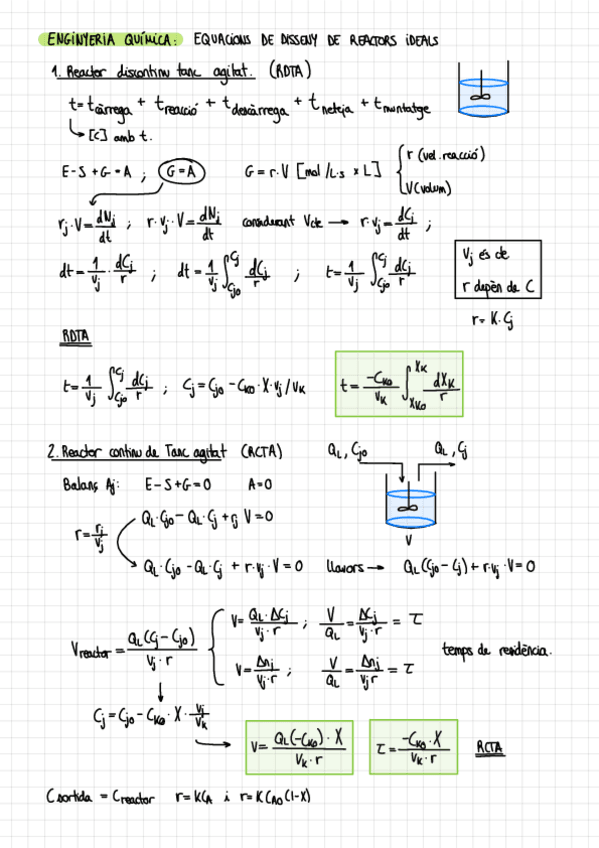 ENGINYERIA QUÍMICA: EQUACIONS DE DISSENY DE REACTORS IDEALS
1. Reactor discontinu tanc agitat. (RDTA)
t = t càrrega + t reacció + t descàrrega + t neteja + t muntatge
↳ [C] amb t.
E-S+G=A ; G=A G=r·V [mol/L·s x L] { r (vel. reacció)
V (volum)
rj·V = dNj/dt ; r·νj·V = dNj/dt considerant V cte → r·νj = dCj/dt ;
dt = 1/νj · dCj/r ; dt = 1/νj ∫Cjo^Cj dCj/r ; t = 1/νj ∫Cjo^Cj dCj/r
Vj és de
r depèn de C
r = K·Cj
RDTA
t = 1/νj ∫Cjo^Cj dCj/r ; Cj = Cjo - CKO·X·νj/νK t = -CKO/νK ∫XKO^XK dXK/r
2. Reactor continu de Tanc agitat (RCTA) QL, Cjo QL, Cj
Balanç Aj: E-S+G=0 A=0
QL·Cjo - QL·Cj + rj V = 0
r = rj/νj
V
QL·Cjo - QL·Cj + r·νj·V = 0 llavors → QL(Cjo - Cj) + r·νj·V = 0
V = QL·ΔCj/νj·r ; V/QL = ΔCj/νj·r = τ
V reactor = QL(Cj - Cjo)/νj·r temps de residència.
V = Δnj/νj·r ; V/QL = Δnj/νj r = τ
Cj = Cjo - CKO·X·νj/νK
V = QL(-CKO)·X/νK·r τ = -CKO·X/νK·r RCTA
C sortida = C reactor r = KCA i r = KCAO(1-X)